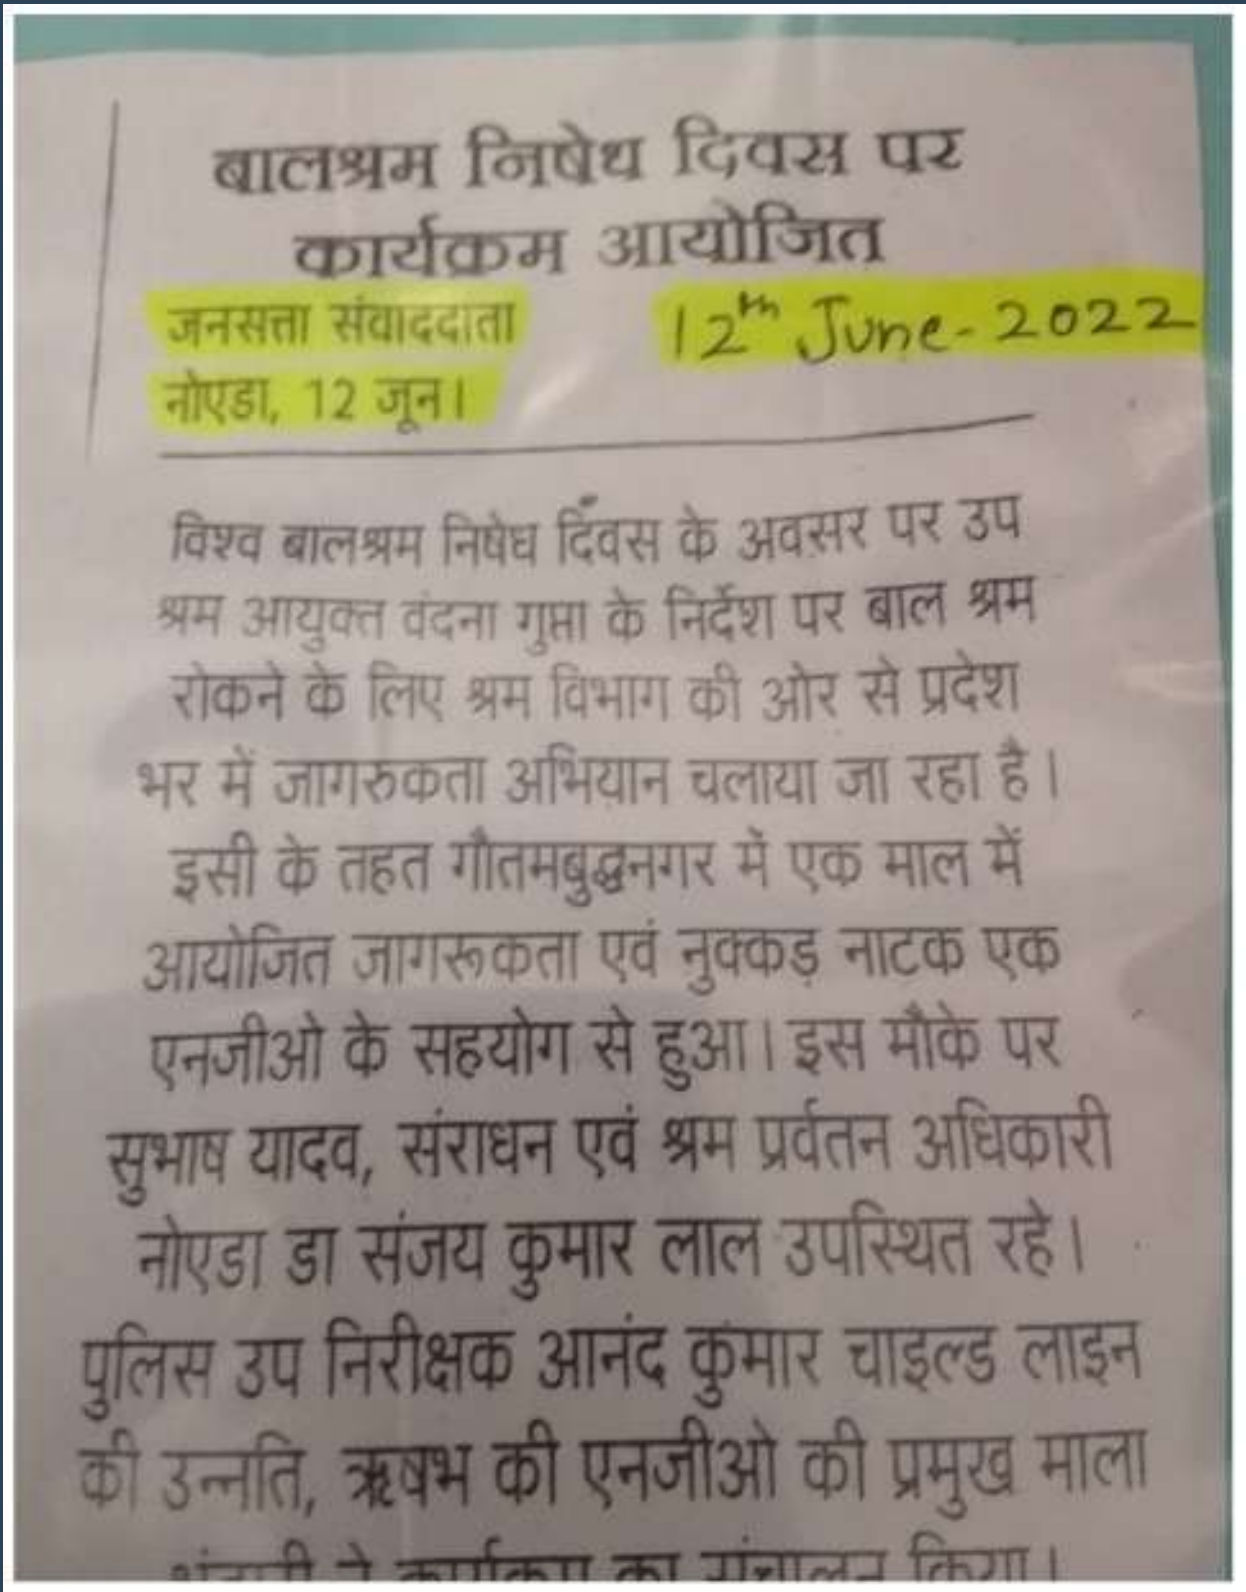 बालश्रम निषेध दिवस पर
कार्यक्रम आयोजित
जनसत्ता संवाददाता
12th June-2022
नोएडा, 12 जून।
विश्व बालश्रम निषेध दिवस के अवसर पर उप
श्रम आयुक्त वंदना गुप्ता के निर्देश पर बाल श्रम
रोकने के लिए श्रम विभाग की ओर से प्रदेश
भर में जागरुकता अभियान चलाया जा रहा है।
इसी के तहत गौतमबुद्धनगर में एक माल में
आयोजित जागरूकता एवं नुक्कड़ नाटक एक
एनजीओ के सहयोग से हुआ। इस मौके पर
सुभाष यादव, संराधन एवं श्रम प्रर्वतन अधिकारी
नोएडा डा संजय कुमार लाल उपस्थित रहे।
पुलिस उप निरीक्षक आनंद कुमार चाइल्ड लाइन
की उन्नति, ऋषभ की एनजीओ की प्रमुख माला
ने कार्यक्रम का संचालन किया।